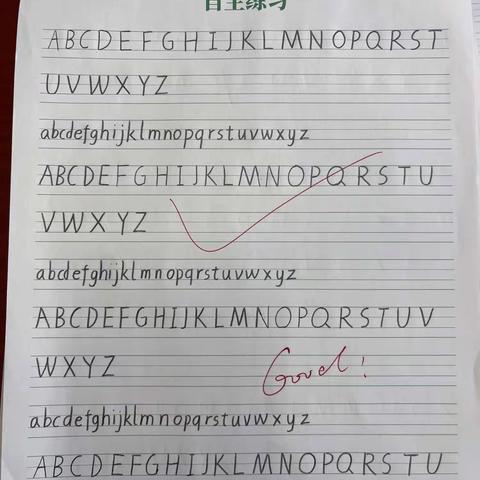 自主练习
ABCDEFGHIJKLMNOPQRST
UVWXYZ
abcdefghijklmnopqrstuvwxyz
ABCDEFGHIJKLMNOPQRSTU
VWXYZ
abcdefghijklmnopqrstuvwxyz
ABCDEFGHIJKLMNOPQRSTUV
WXYZ
Good!
abcdefghijklmnopqrstuvwxyz
ABCDEFGHIJKLMNOPQRSTU